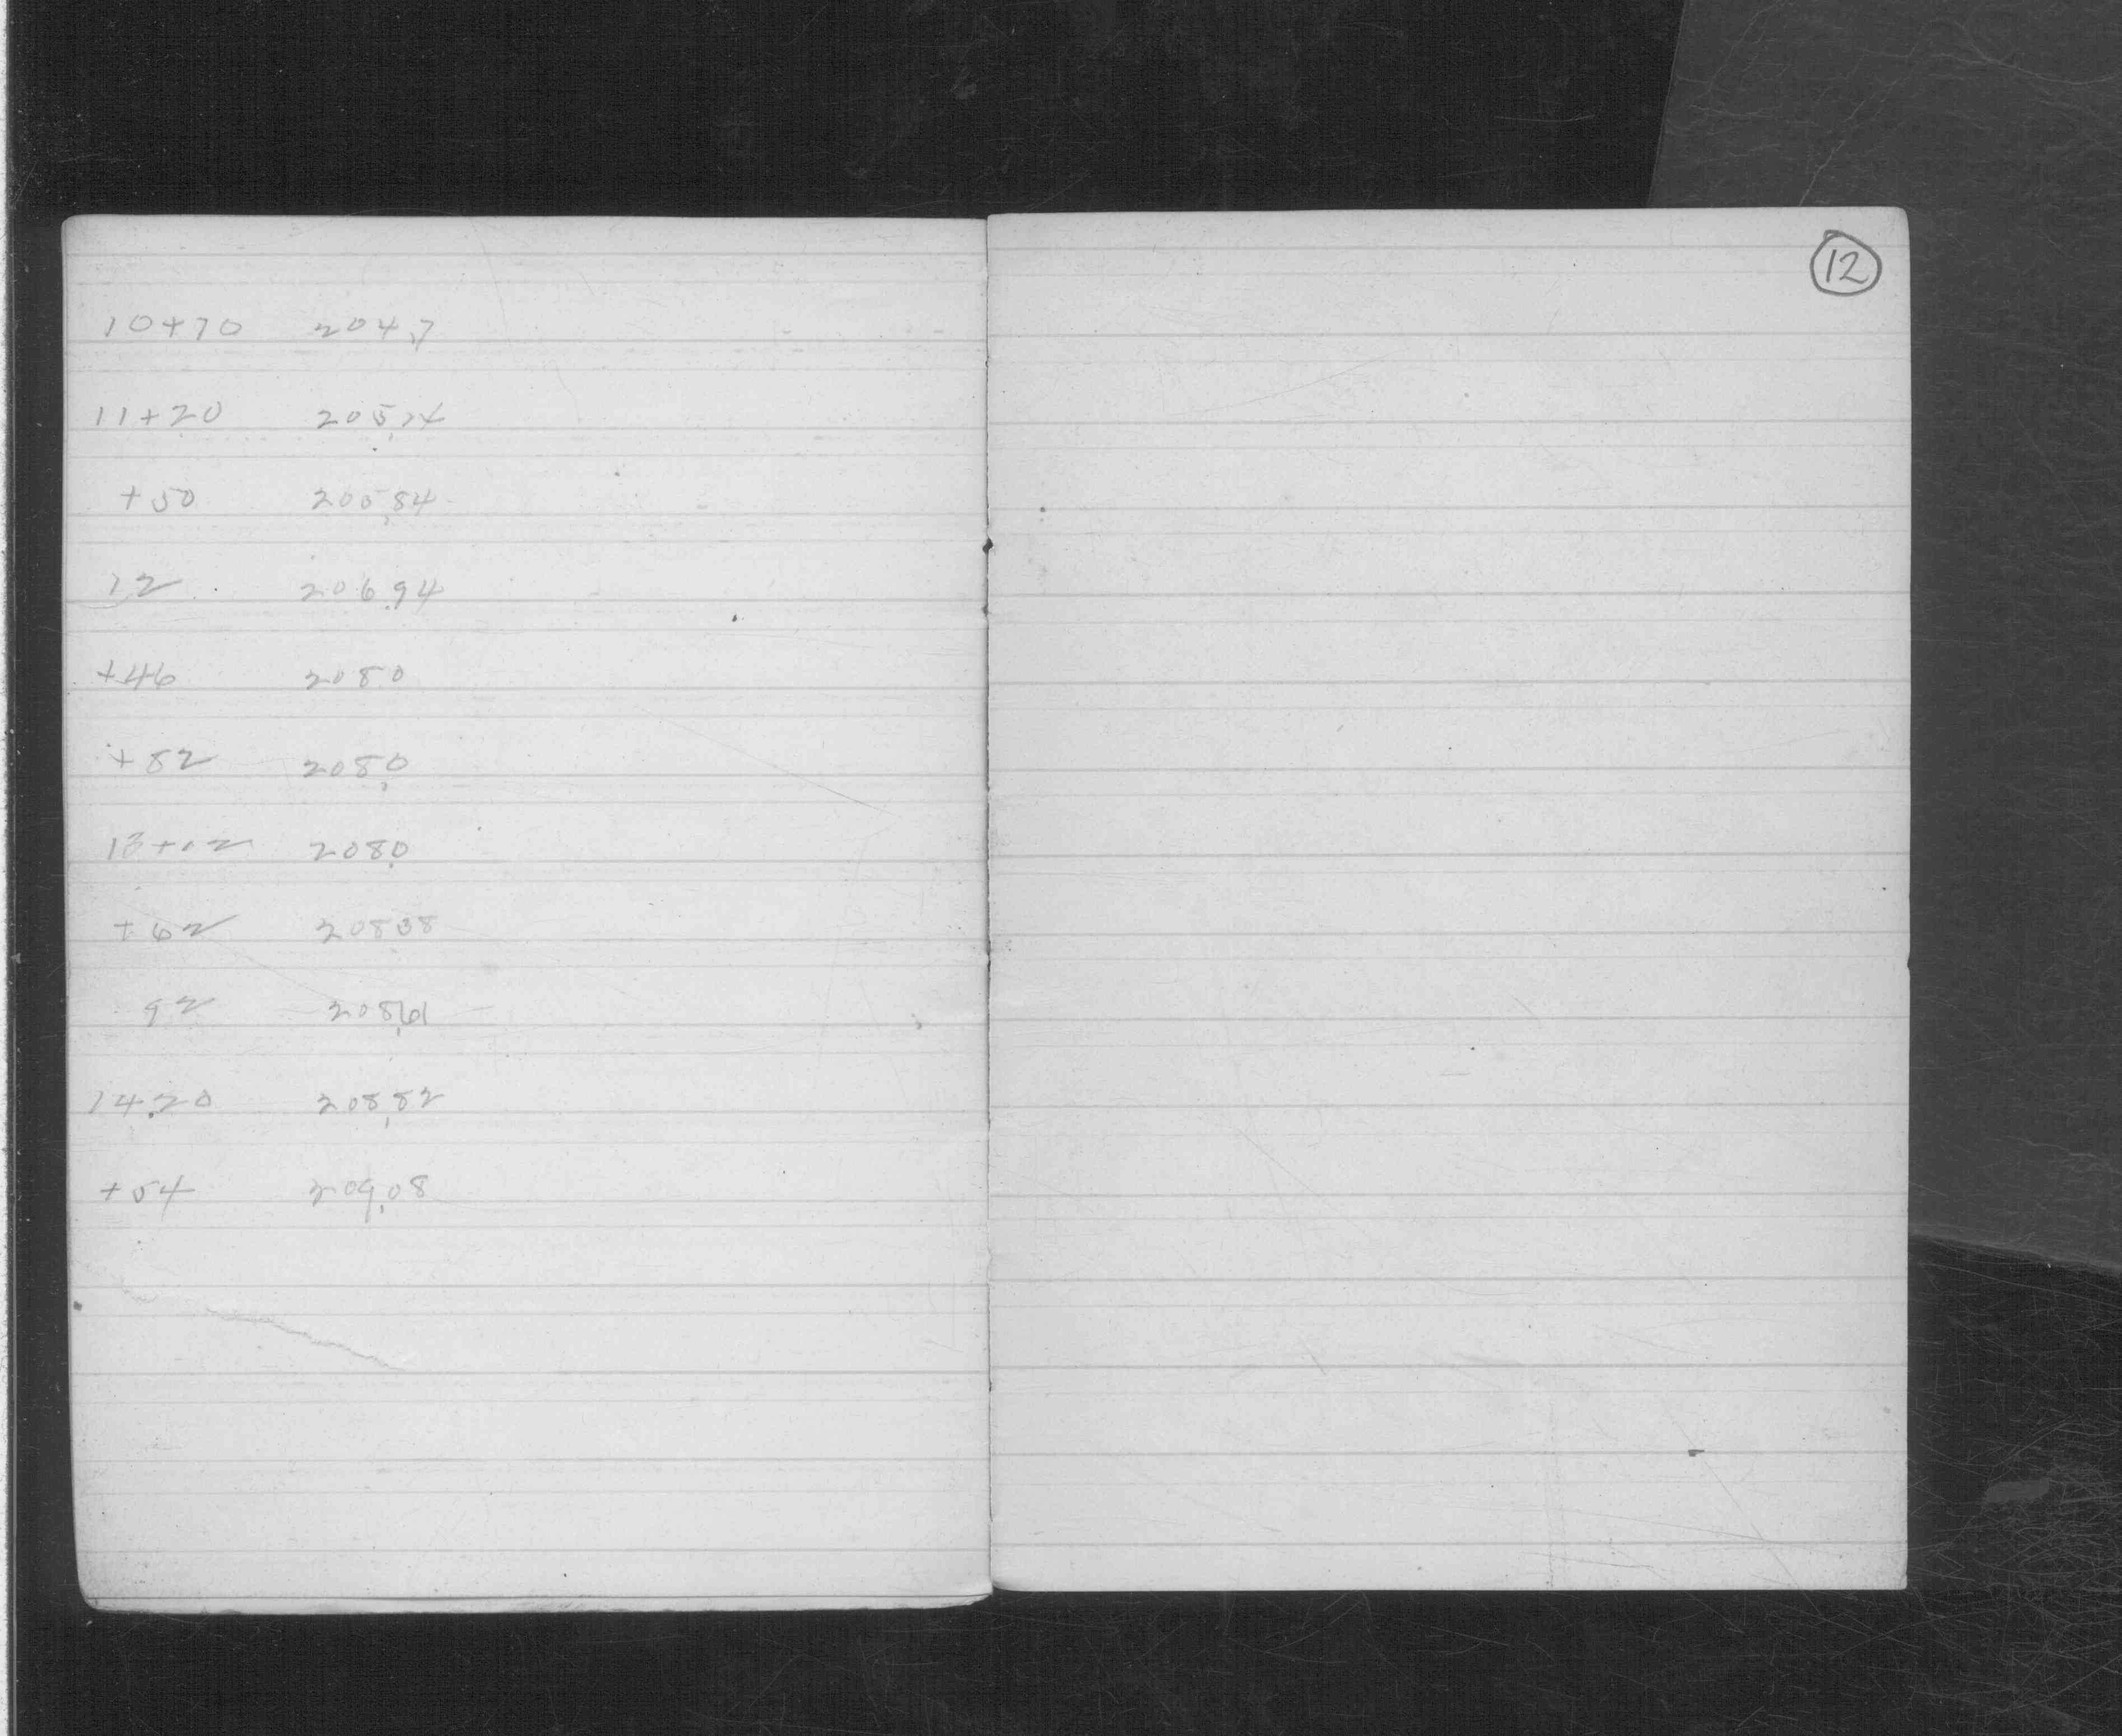 10+70 204,7
11+20 205,14
+50 205,84
12 206,94
+46 208.0
+82 208,0
13+02 208,0
+62 208,38
92 208,61
14.20 208,82
+54 209,08
12